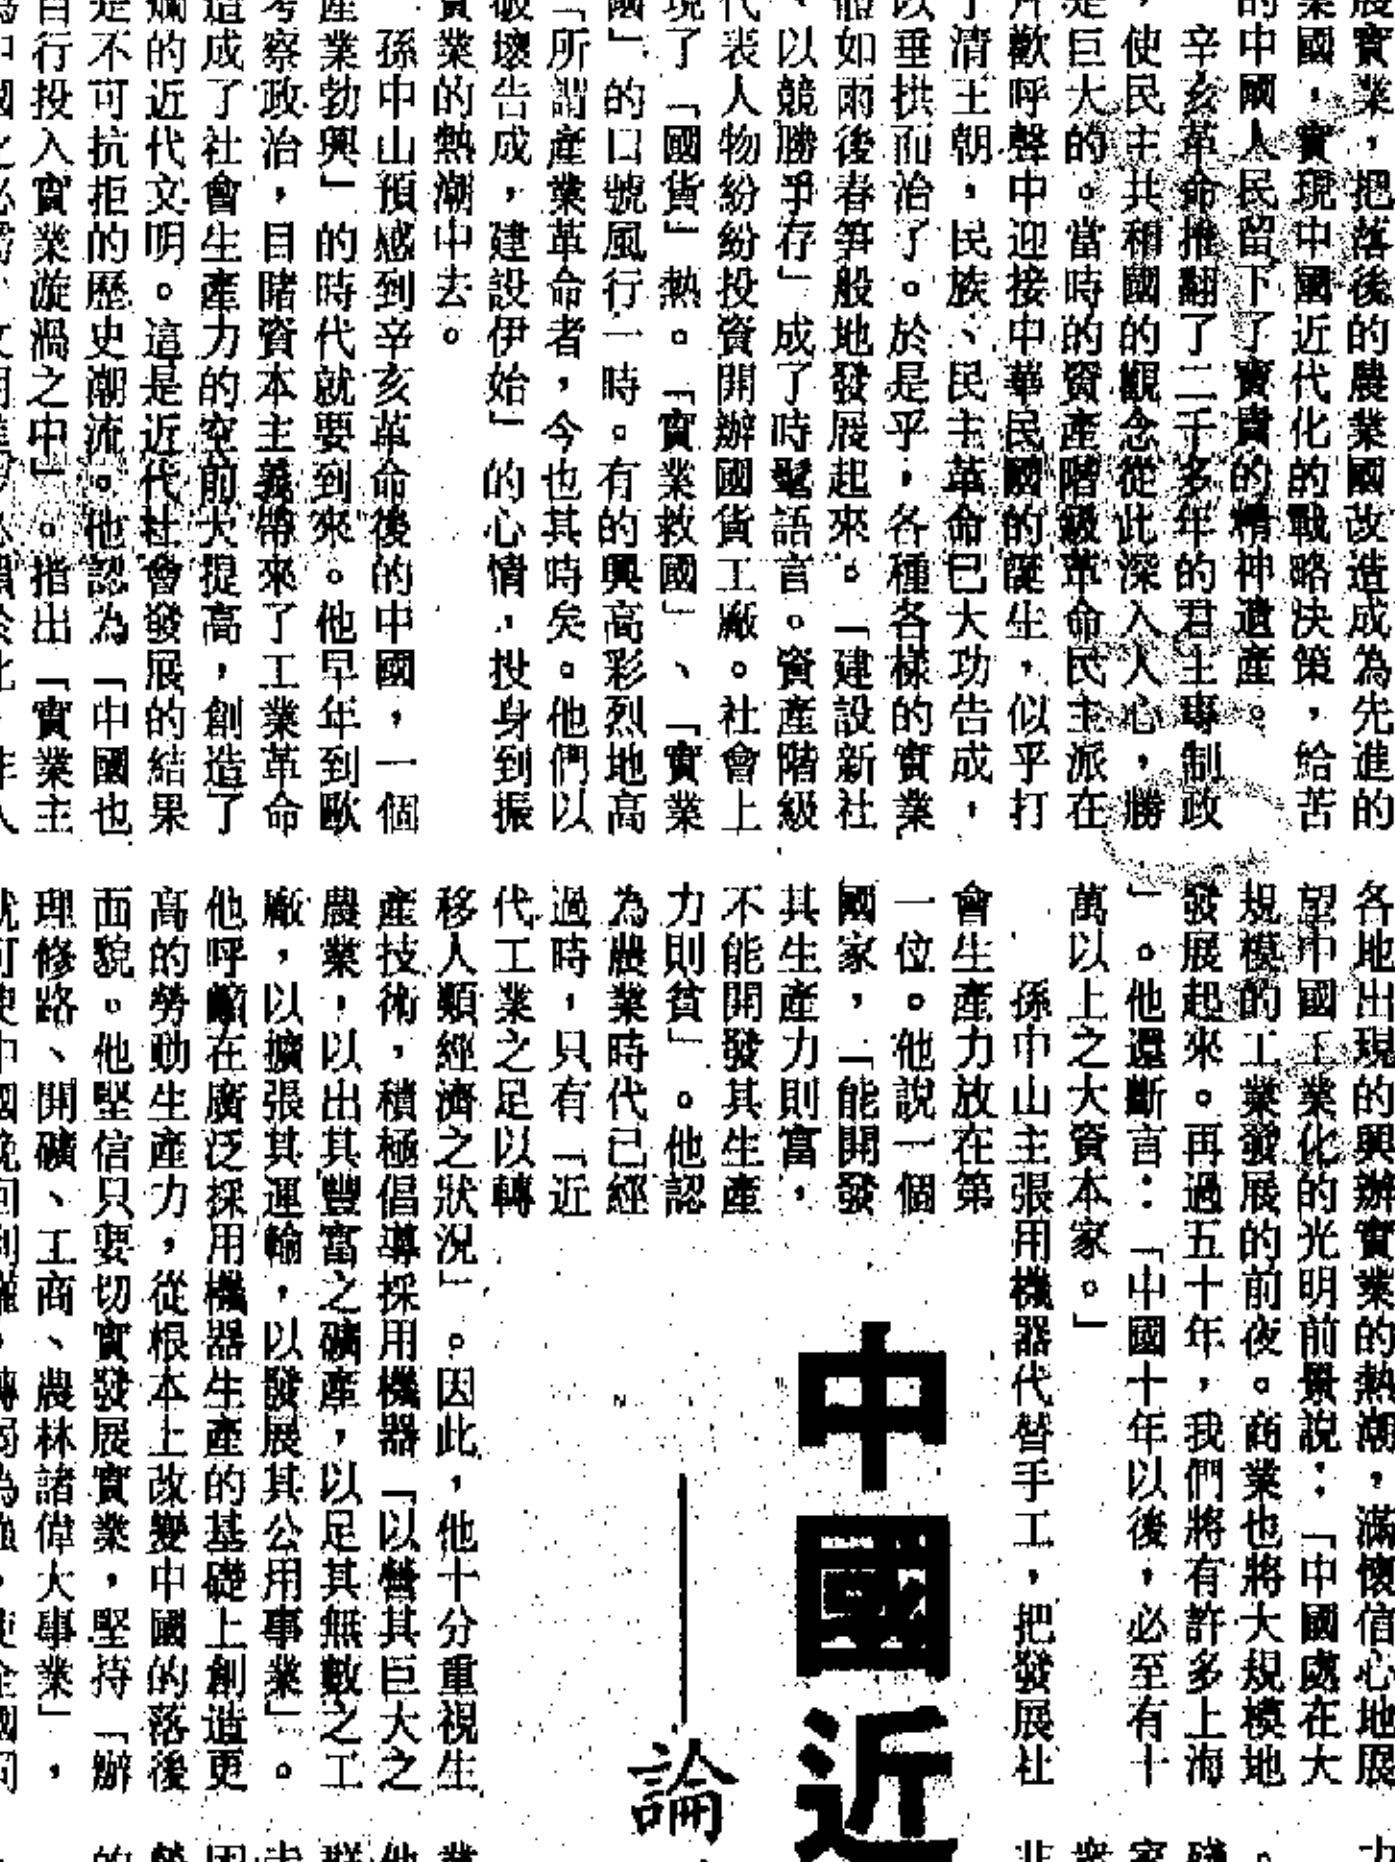 展實業，把落後的農業國改造成為先進的
業國，實現中國近代化的戰略決策，給苦
的中國人民留下了寶貴的精神遺產。
辛亥革命推翻了二千多年的君主專制政
，使民主共和國的觀念從此深入人心，勝
是巨大的。當時的資產階級革命民主派在
片歡呼聲中迎接中華民國的誕生，似乎打
了清王朝，民族、民主革命已大功告成，
以垂拱而治了。於是乎，各種各樣的實業
體如雨後春筍般地發展起來。「建設新社
、以競勝爭存」成了時髦語言。資產階級
代表人物紛紛投資開辦國貨工廠。社會上
現了「國貨」熱。「實業救國」、「實業
國」的口號風行一時。有的興高彩烈地高
「所謂產業革命者，今也其時矣。他們以
破壞告成，建設伊始」的心情，投身到振
實業的熱潮中去。
孫中山預感到辛亥革命後的中國，一個
產業勃興」的時代就要到來。他早年到歐
考察政治，目睹資本主義帶來了工業革命
造成了社會生產力的空前大提高，創造了
爛的近代文明。這是近代社會發展的結果
是不可抗拒的歷史潮流。他認為「中國也
自行投入實業漩渦之中」。指出「實業主
各地出現的興辦實業的熱潮，滿懷信心地展
望中國工業化的光明前景說：「中國處在大
規模的工業發展的前夜。商業也將大規模地
發展起來。再過五十年，我們將有許多上海
」。他還斷言：「中國十年以後，必至有十
萬以上之大資本家。」
孫中山主張用機器代替手工，把發展社
會生產力放在第
一位。他說一個
國家，「能開發
其生產力則富，
不能開發其生產
力則貧」。他認
為農業時代已經
過時，只有「近
代工業之足以轉
移人類經濟之狀況」。因此，他十分重視生
產技術，積極倡導採用機器「以營其巨大之
農業，以出其豐富之礦產，以足其無數之工
廠，以擴張其運輸，以發展其公用事業」。
他呼籲在廣泛採用機器生產的基礎上創造更
高的勞動生產力，從根本上改變中國的落後
面貌。他堅信只要切實發展實業，堅持「辦
理修路、開礦、工商、農林諸偉大事業」，
中國近
——論